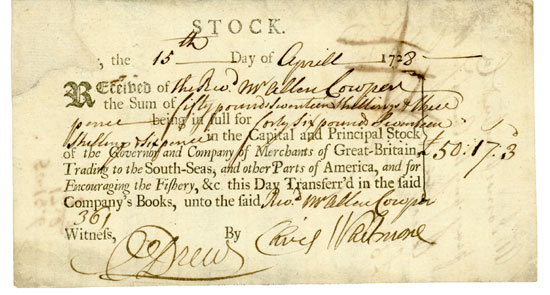 STOCK.
, the 15th Day of Aprill 1728
Received of the Revd. Mr Allen Cowper
the Sum of fifty pounds seventeen Shillings & three
pence being in full for forty six pounds seventeen
Shillings & six pence in the Capital and Principal Stock
of the Governor and Company of Merchants of Great-Britain, £50:17:3
Trading to the South-Seas, and other Parts of America, and for
Encouraging the Fishery, &c this Day Transferr'd in the said
Company's Books, unto the said Revd. Mr Allen Cowper
361
Witness, By
Drew Whitmore